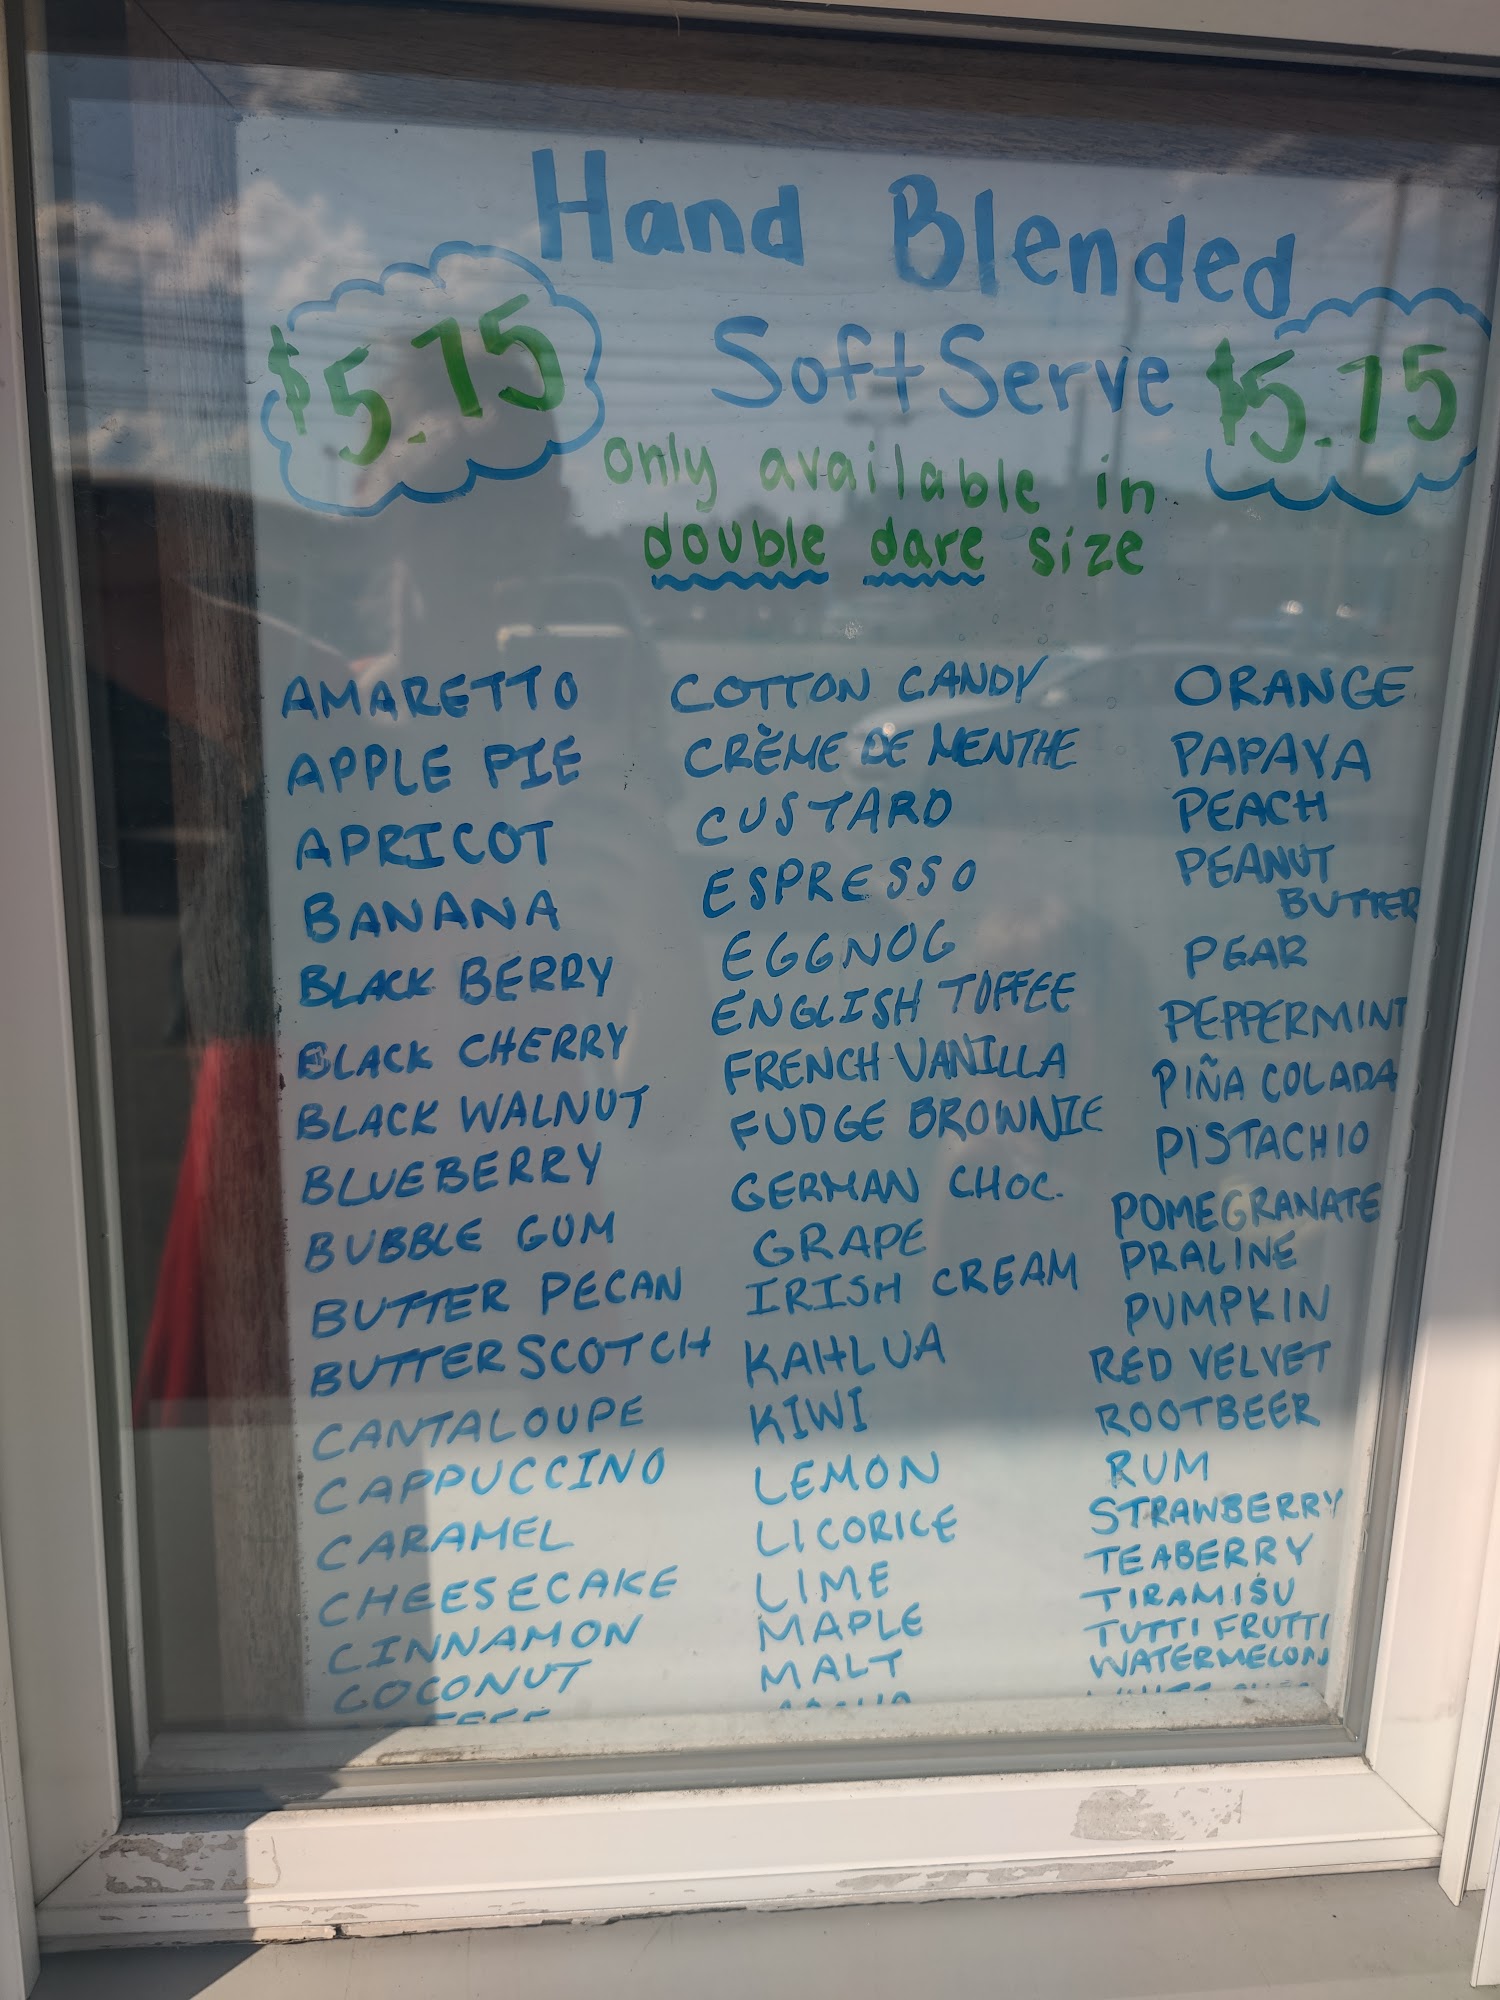 Hand Blended
Soft Serve
$5.75
$5.75
only available in
double dare size
AMARETTO
APPLE PIE
APRICOT
BANANA
BLACK BERRY
BLACK CHERRY
BLACK WALNUT
BLUEBERRY
BUBBLE GUM
BUTTER PECAN
BUTTERSCOTCH
CANTALOUPE
CAPPUCCINO
CARAMEL
CHEESECAKE
CINNAMON
COCONUT
COTTON CANDY
CRÈME DE MENTHE
CUSTARD
ESPRESSO
EGGNOG
ENGLISH TOFFEE
FRENCH VANILLA
FUDGE BROWNIE
GERMAN CHOC.
GRAPE
IRISH CREAM
KAHLUA
KIWI
LEMON
LICORICE
LIME
MAPLE
MALT
ORANGE
PAPAYA
PEACH
PEANUT
BUTTER
PEAR
PEPPERMINT
PIÑA COLADA
PISTACHIO
POMEGRANATE
PRALINE
PUMPKIN
RED VELVET
ROOTBEER
RUM
STRAWBERRY
TEABERRY
TIRAMISU
TUTTI FRUTTI
WATERMELON